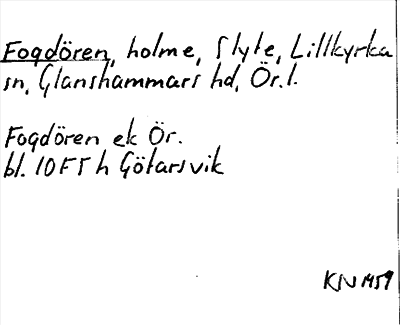 Fogdören, holme, Slyte, Lillkyrka
sn, Glanshammars hd, Ör. l.
Fogdören ek Ör.
bl. 10F5h Götarsvik
KN 1959